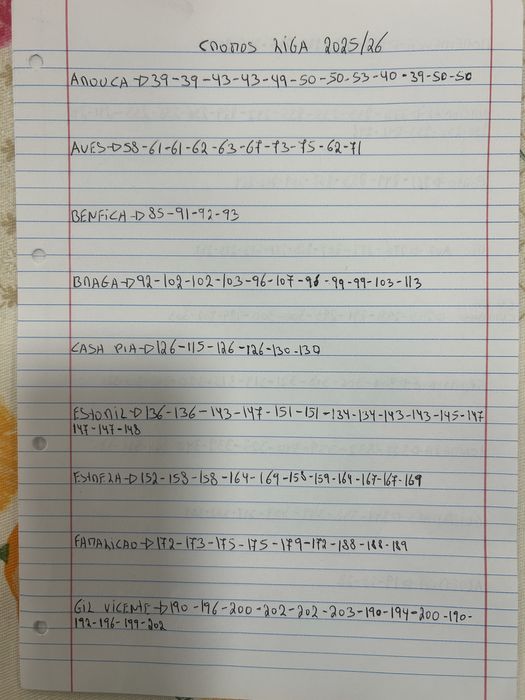 CROMOS LIGA 2025/26
AROUCA → 39-39-43-43-49-50-50-53-40-39-50-50
AVES → 58-61-61-62-63-67-73-75-62-71
BENFICA → 85-91-92-93
BRAGA → 92-102-102-103-96-107-96-99-99-103-113
CASA PIA → 126-115-126-126-130-130
ESTORIL → 136-136-143-147-151-151-134-134-143-143-145-147
147-147-148
ESTRELA → 152-158-158-164-169-158-159-164-167-167-169
FAMALICAO → 172-173-175-175-179-172-188-188-189
GIL VICENTE → 190-196-200-202-202-203-190-194-200-190-
192-196-199-202